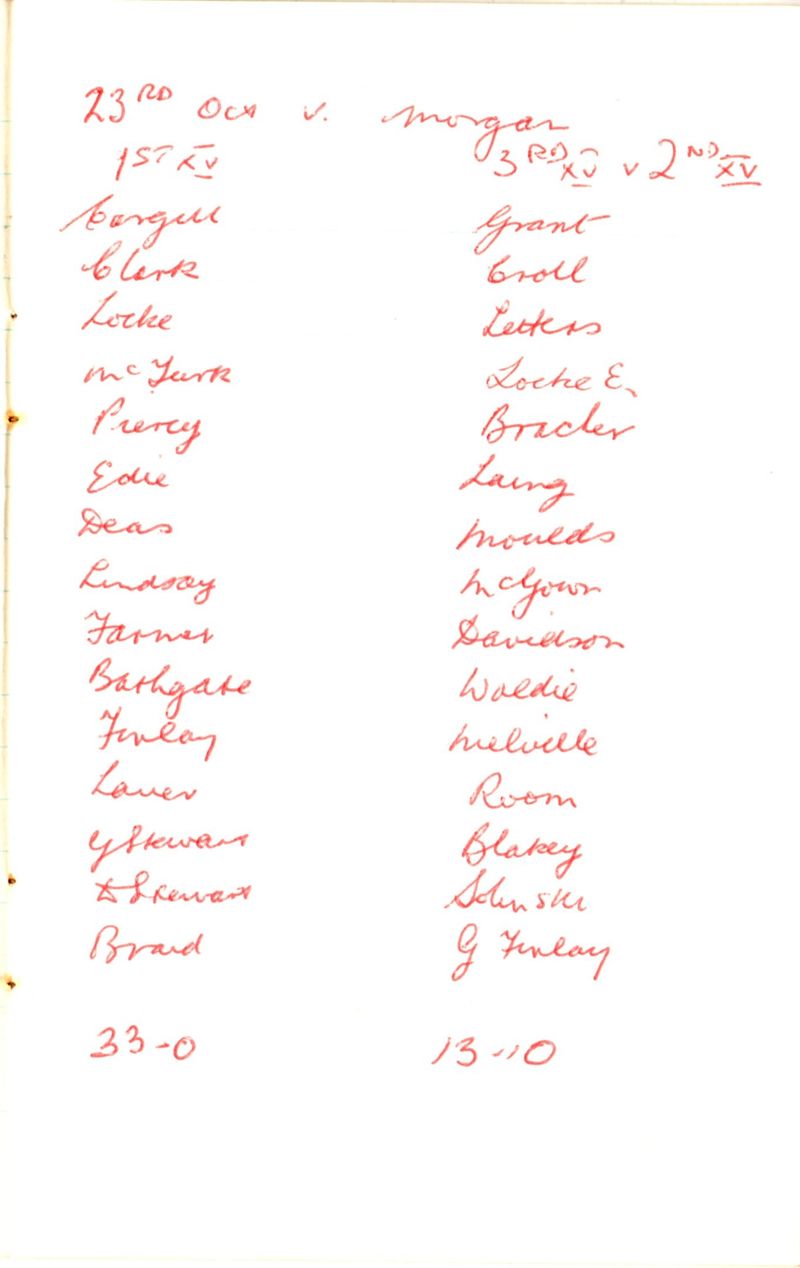 23RD Oct v. Morgan
1ST XV
3RD XV v 2ND XV
Cargill
Clark
Locke
McTurk
Piercy
Edie
Deas
Lindsay
Farmer
Bathgate
Finlay
Laver
G Stewart
D Stewart
Braid
33-0
Grant
Croll
Letters
Locke E.
Laing
Moulds
McGown
Davidson
Waldie
Melville
Room
Blakey
Solinski
G Finlay
13-10